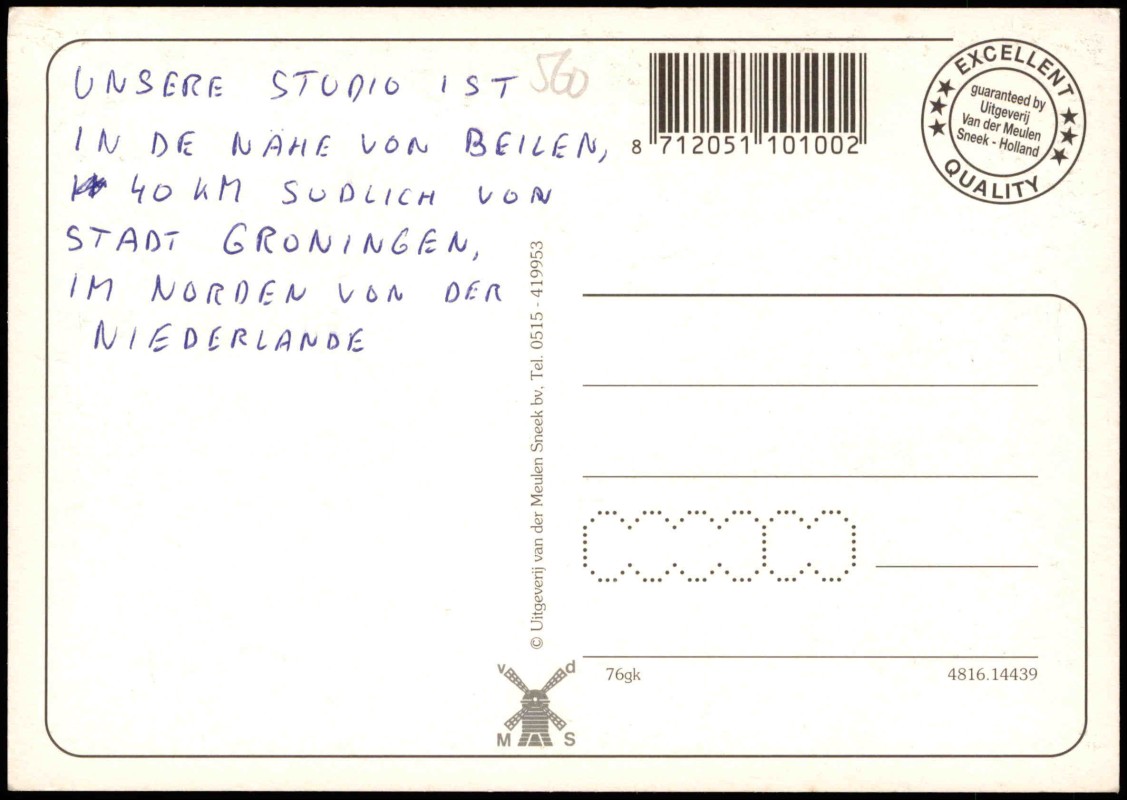 UNSERE STUDIO IST
IN DE NÄHE VON BEILEN,
40 KM SUDLICH VON
STADT GRONINGEN,
IM NORDEN VON DER
NIEDERLANDE
560
8 712051 101002
EXCELLENT
guaranteed by
Uitgeverij
Van der Meulen
Sneek - Holland
QUALITY
© Uitgeverij van der Meulen Sneek bv, Tel. 0515 - 419953
v d
M S
76gk
4816.14439